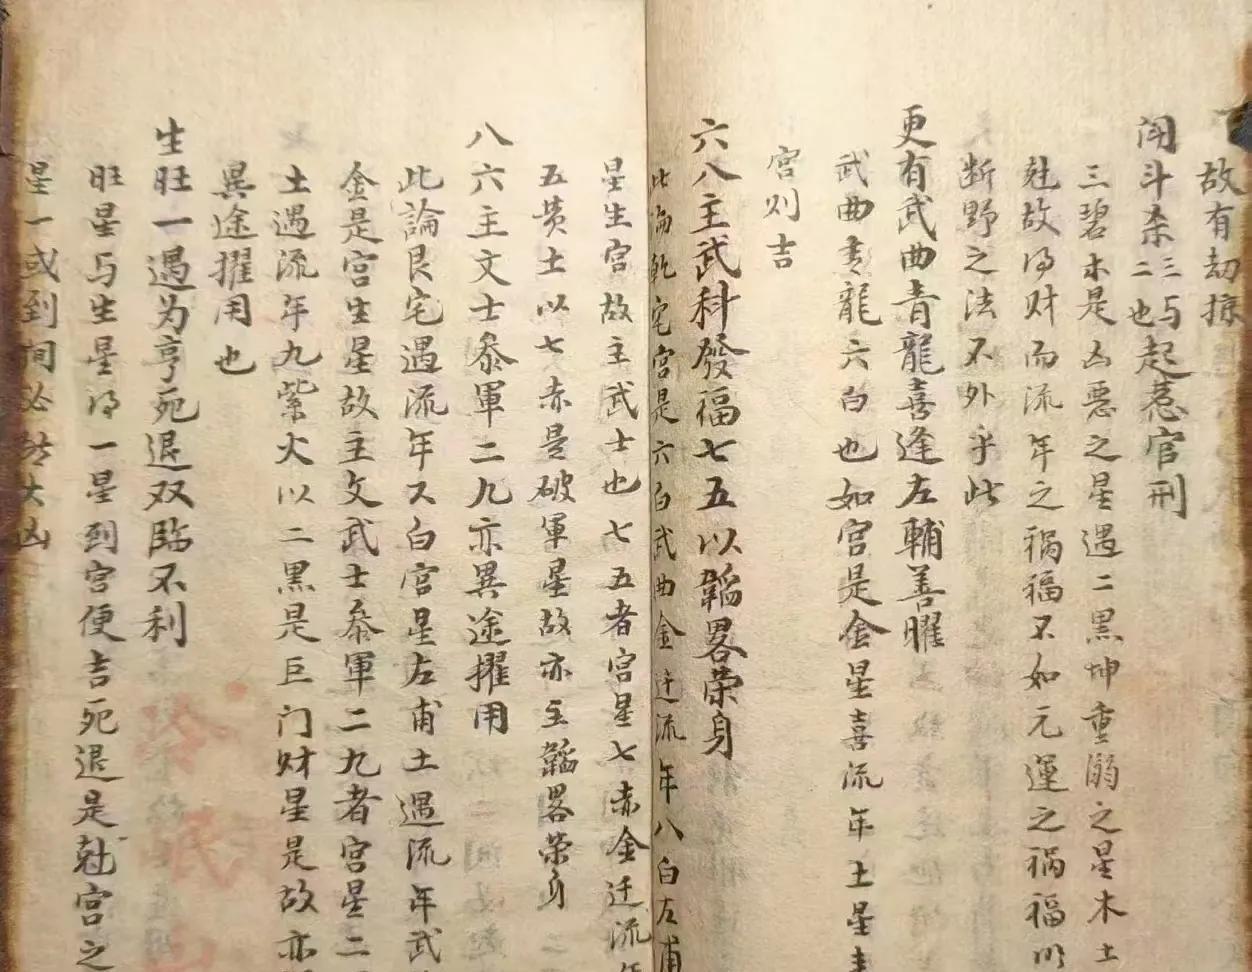 故有劫掠
闘斗杀三与起惹官刑
二也
三碧木是凶惡之星遇二黑坤重溺之星木土
尅故得财而流年之祸福不如元運之祸福以
断野之法不外乎此
更有武曲青龍喜逢左輔善曜
武曲青龍六白也如宫是金星喜流年土星
宫则吉
六八主武科發福七五以韜畧荣身
此論乾宅宫是六白武曲金迁流年八白左甫
星生宫故主武士也七五者宫星七赤金迁流年
五黄土以七赤是破軍星故亦主韜畧荣身
八六主文士叅軍二九亦異途擢用
此論艮宅遇流年六白宫星左甫土遇流年武
金是宫生星故主文武士叅軍二九者宫星二
土遇流年九紫火以二黑是巨门财星是故亦
異途擢用也
生旺一遇为亨死退双臨不利
旺星与生星得一星到宫便吉死退是尅宫之
星一或到间必然大凶